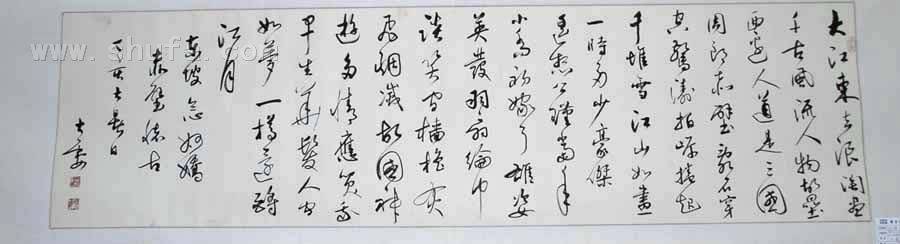 大江東去浪淘盡
千古風流人物故壘
西邊人道是三國
周郎赤壁亂石穿
空驚濤拍岸捲起
千堆雪江山如畫
一時多少豪傑
遙想公瑾當年
小喬初嫁了雄姿
英發羽扇綸巾
談笑間檣櫓灰
飛烟滅故國神
遊多情應笑我
早生華髮人間
如夢一樽還酹
江月
東坡念奴嬌
赤壁懷古